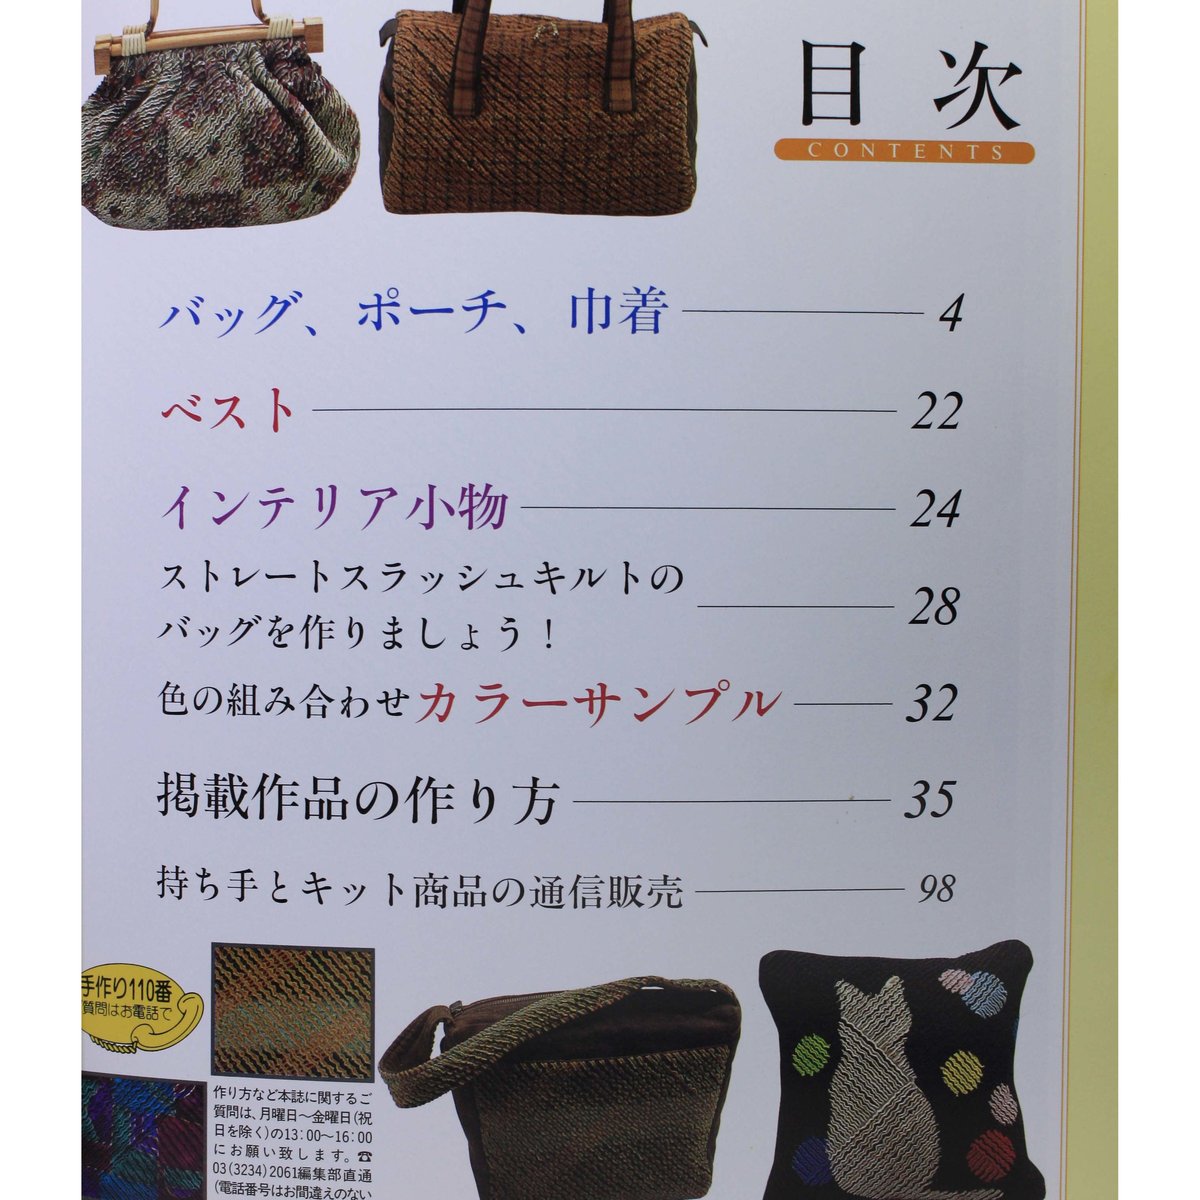 目次
CONTENTS
バッグ、ポーチ、巾着 4
ベスト 22
インテリア小物 24
ストレートスラッシュキルトの
バッグを作りましょう！ 28
色の組み合わせカラーサンプル 32
掲載作品の作り方 35
持ち手とキット商品の通信販売 98
手作り110番
質問はお電話で
作り方など本誌に関するご
質問は、月曜日〜金曜日(祝
日を除く)の13：00〜16：00
にお願い致します。☎
03(3234)2061編集部直通
(電話番号はお間違えのない